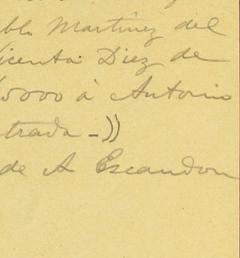 blo Martinez del
icenta Diez de
0000 à Antonio
trada —))
de A Escandon